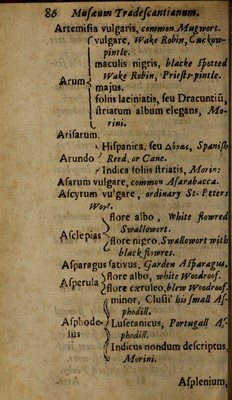 86 Musæum Tradescantianum.
Artemisia vulgaris, common Mugwort.
vulgare, Wake Robin, Cuckow-
pintle.
maculis nigris, blacke spotted
Wake Robin, Priests-pintle.
Arum
majus.
foliis laciniatis, seu Dracuntiū,
striatum album elegans, Mo-
rini.
Arisarum.
Hispanica, seu Δόναξ, Spanish
Arundo Reed, or Cane.
Indica foliis striatis, Morin:
Asarum vulgare, common Asarabacca.
Ascyrum vulgare, ordinary St. Peters
Wort.
flore albo, white flowred
Swallowort.
Asclepias
flore nigro, Swallowort with
black flowres.
Asparagus sativus, Garden Asparagus.
flore albo, white Woodroof.
Asperula
flore cæruleo, blew Woodroof.
minor, Clusii his small As-
phodill.
Asphode- Lusetanicus, Portugall As-
lus phodill.
Indicus nondum descriptus,
Morini.
Asplenium,